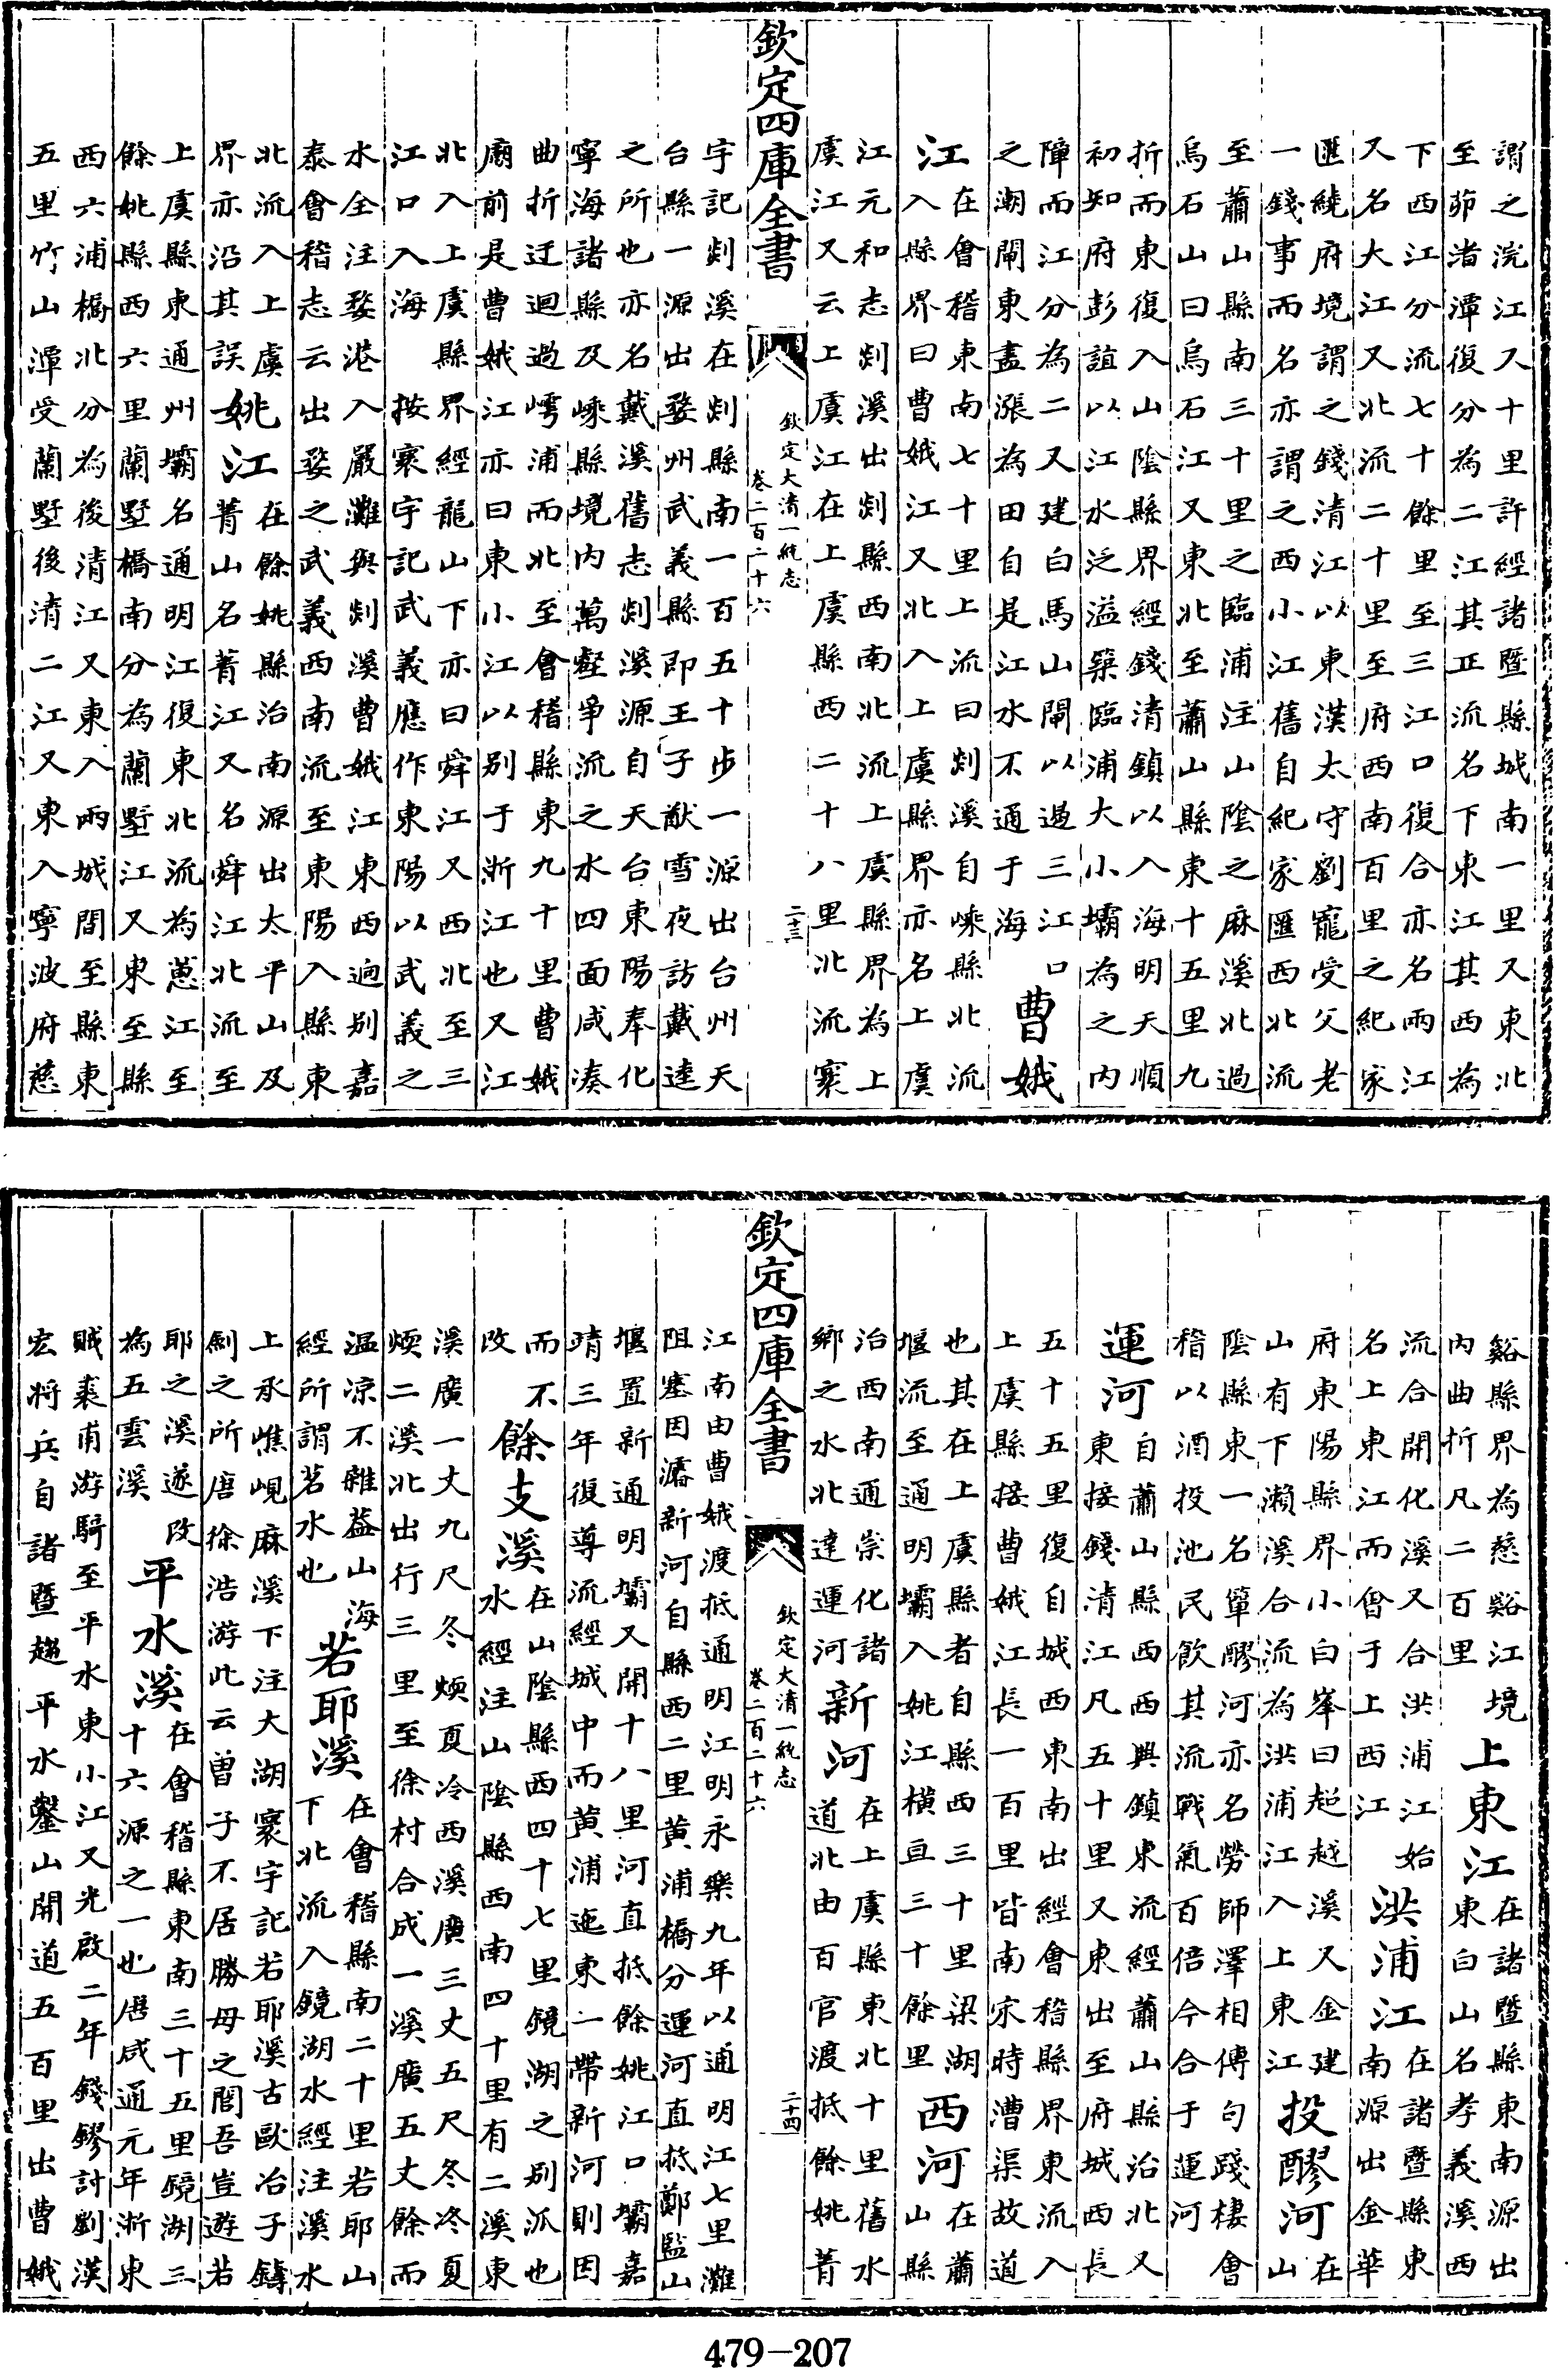 謂之浣江又十里許經諸暨縣城南一里又東北
至茆渚潭復分為二江其正流名下東江其西為
下西江分流七十餘里至三江口復合亦名兩江
又名大江又北流二十里至府西南百里之紀家
匯繞府境謂之錢清江以東漢太守劉寵受父老
一錢事而名亦謂之西小江舊自紀家匯西北流
至蕭山縣南三十里之臨浦注山陰之麻溪北過
烏石山曰烏石江又東北至蕭山縣東十五里九
折而東復入山陰縣界經錢清鎮以入海明天順
初知府彭誼以江水泛溢築臨浦大小壩為之內
障而江分為二又建白馬山閘以遏三江口
之潮閘東盡漲為田自是江水不通于海
曹娥
江
在會稽東南七十里上流曰剡溪自嵊縣北流
入縣界曰曹娥江又北入上虞縣界亦名上虞
江元和志剡溪出剡縣西南北流上虞縣界為上
虞江又云上虞江在上虞縣西二十八里北流寰
欽定四庫全書
欽定大清一統志
卷二百二十六
二十三
宇記剡溪在剡縣南一百五十步一源出台州天
台縣一源出婺州武義縣即王子猷雪夜訪戴逵
之所也亦名戴溪舊志剡溪源自天台東陽奉化
寧海諸縣及嵊縣境內萬壑爭流之水四面咸湊
曲折迂迴過嶀浦而北至會稽縣東九十里曹娥
廟前是曹娥江亦曰東小江以別于浙江也又江
北入上虞縣界經龍山下亦曰舜江又西北至三
江口入海按寰宇記武義應作東陽以武義之
水全注婺港入嚴灘與剡溪曹娥江東西迥別嘉
泰會稽志云出婺之武義西南流至東陽入縣東
北流入上虞
界亦沿其誤
姚江
在餘姚縣治南源出太平山及
菁山名菁江又名舜江北流至
上虞縣東通州壩名通明江復東北流為蕙江至
餘姚縣西六里蘭墅橋南分為蘭墅江又東至縣
西六浦橋北分為後清江又東入兩城間至縣東
五里竹山潭受蘭墅後清二江又東入寧波府慈
谿縣界為慈谿江境
內曲折凡二百里
上東江
在諸暨縣東南源出
東白山名孝義溪西
流合開化溪又合洪浦江始
名上東江而會于上西江
洪浦江
在諸暨縣東
南源出金華
府東陽縣界小白峯曰趁越溪又金建
山有下瀨溪合流為洪浦江入上東江
投醪河
在
山
陰縣東一名簞醪河亦名勞師澤相傳句踐棲會
稽以酒投池民飲其流戰氣百倍今合于運河
運河
自蕭山縣西西興鎮東流經蕭山縣治北又
東接錢清江凡五十里又東出至府城西長
五十五里復自城西東南出經會稽縣界東流入
上虞縣接曹娥江長一百里皆南宋時漕渠故道
也其在上虞縣者自縣西三十里梁湖
堰流至通明壩入姚江橫亘三十餘里
西河
在蕭
山縣
治西南通崇化諸
鄉之水北達運河
新河
在上虞縣東北十里舊水
道北由百官渡抵餘姚菁
欽定四庫全書
欽定大清一統志
卷二百二十六
二十四
江南由曹娥渡抵通明江明永樂九年以通明江七里灘
阻塞因濬新河自縣西二里黃浦橋分運河直抵鄭監山
堰置新通明壩又開十八里河直抵餘姚江口壩嘉
靖三年復導流經城中而黃浦迤東一帶新河則因
而不
改
餘支溪
在山陰縣西四十七里鏡湖之別派也
水經注山陰縣西南四十里有二溪東
溪廣一丈九尺冬煗夏冷西溪廣三丈五尺冬冷夏
煗二溪北出行三里至徐村合成一溪廣五丈餘而
溫涼不雜蓋山海
經所謂茗水也
若耶溪
在會稽縣南二十里若耶山
下北流入鏡湖水經注溪水
上承嶕峴麻溪下注大湖寰宇記若耶溪古歐冶子鑄
劍之所唐徐浩游此云曾子不居勝母之閭吾豈遊若
耶之溪遂改
為五雲溪
平水溪
在會稽縣東南三十五里鏡湖三
十六源之一也唐咸通元年浙東
賊裘甫游騎至平水東小江又光啟二年錢鏐討劉漢
宏將兵自諸暨趨平水鑿山開道五百里出曹娥
479-207